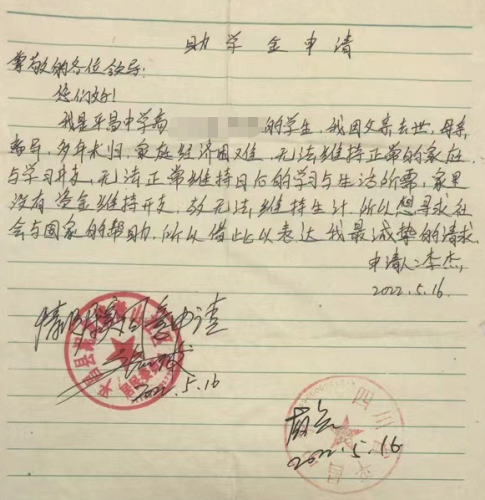 助学金申请
尊敬的各位领导:
您们好!
我是平昌中学高 的学生,我因父亲去世,母亲
离异,多年未归,家庭经济困难,无法维持正常的家庭
与学习开支,无法正常维持日后的学习与生活所需,家里
没有资金维持开支,故无法维持生计,所以想寻求社
会与国家的帮助,所以借此以表达我最诚挚的请求.
申请人:李杰
2022.5.16.
情况属实同意申请
平昌县
2022.5.16
四川
平昌
2022.5.16